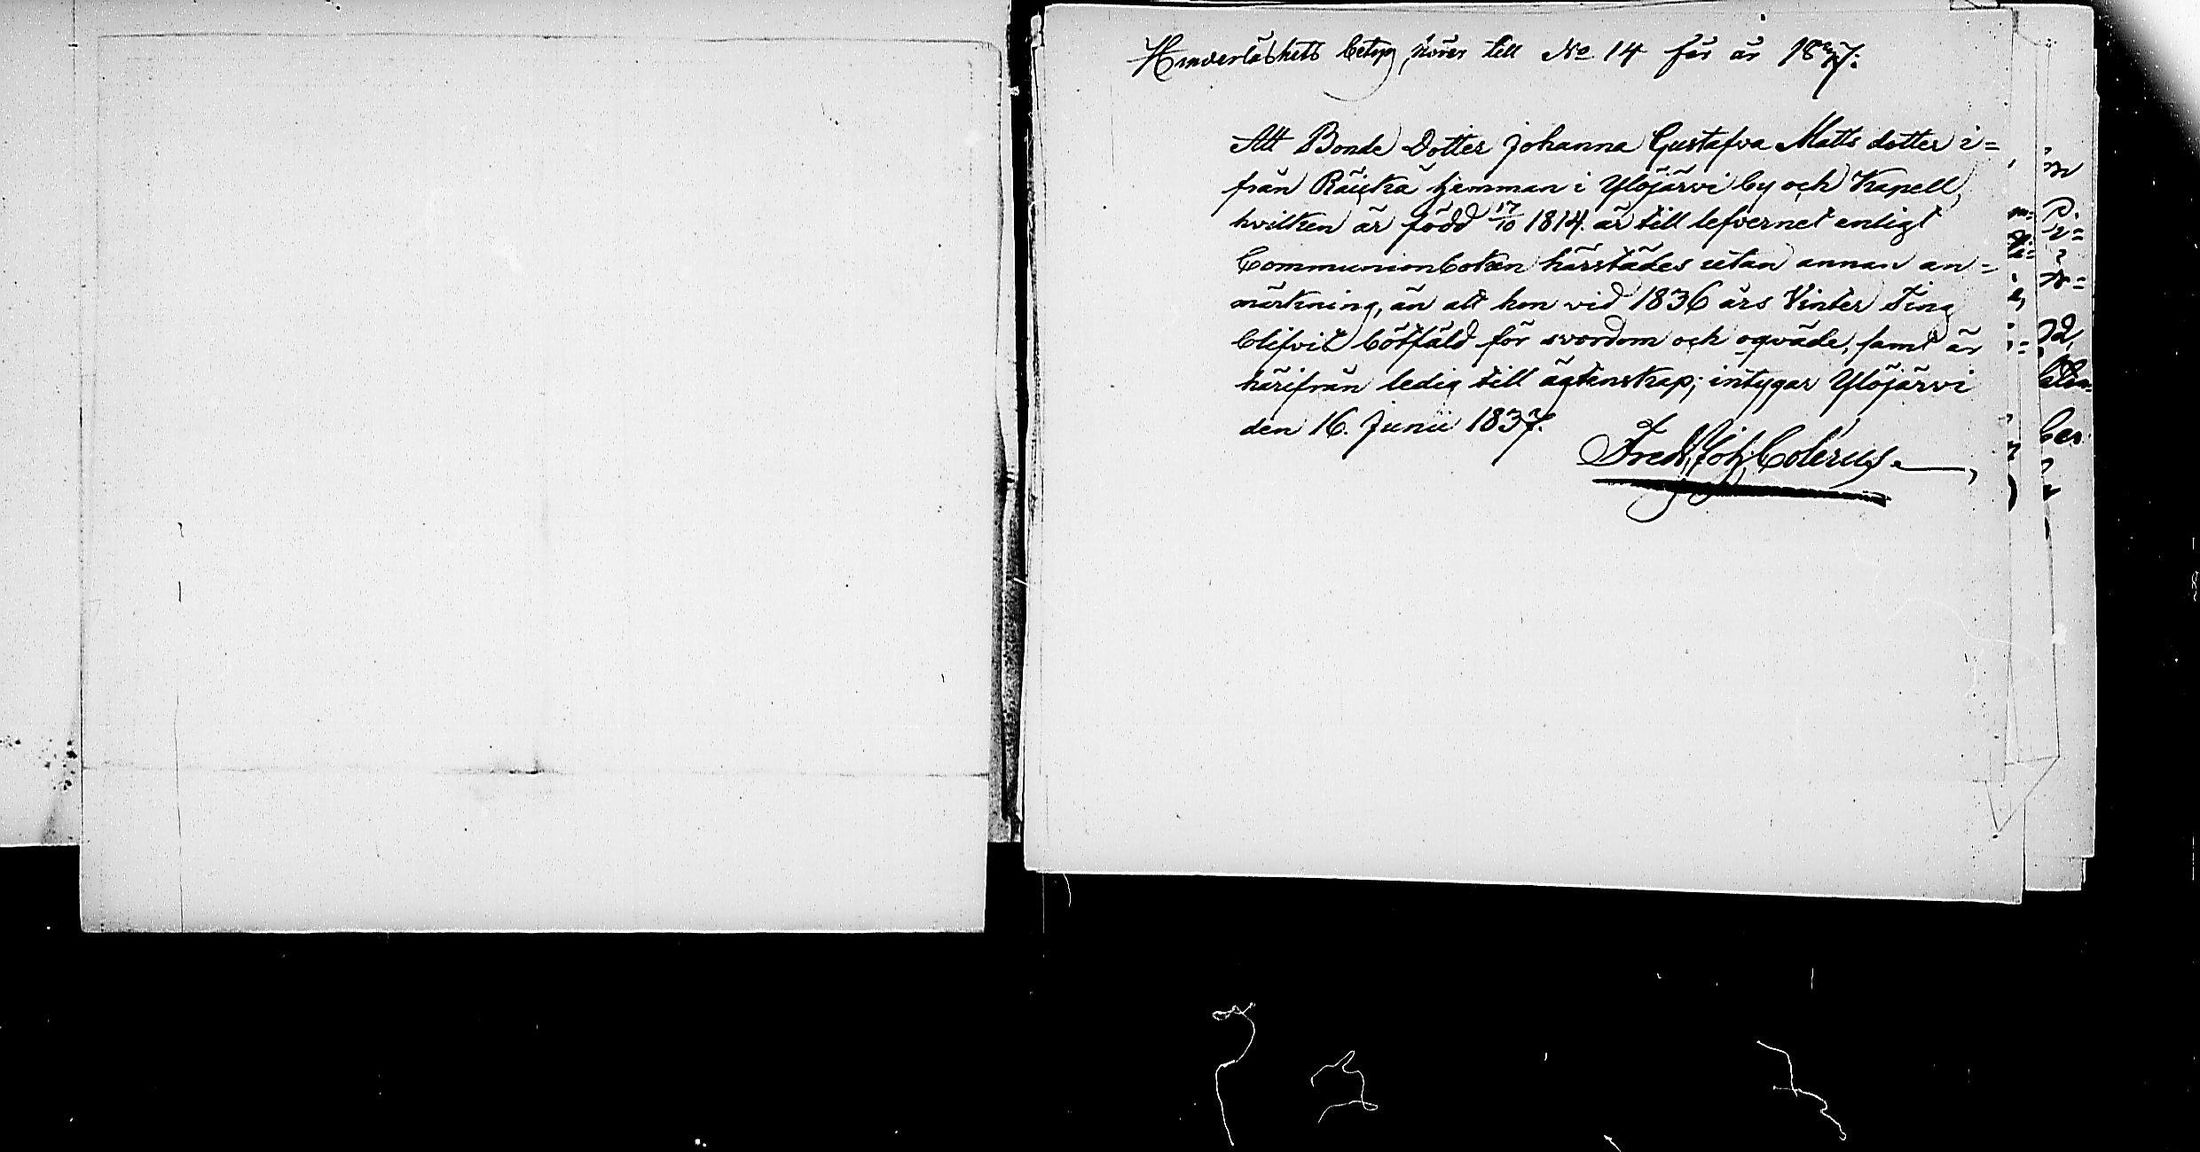 Hinderlöshets betyg hörer till No 14 för år 1837.
Att Bonde Dotter Johanna Gustafva Matts dotter i=
från Räickä hemman i Ylöjärvi by och Kapell,
hvilken är född 17/10 1814. är till lefvernet enligt
Communionboken härstädes utan annan an=
märkning, än att hon vid 1836 års Vinter Ting
blifvit bötfäld för svordom och oqväde, samt är
härifrån ledig till ägtenskap; intygar Ylöjärvi
den 16. Junii 1837.
Fredr. Joh. Colerus.